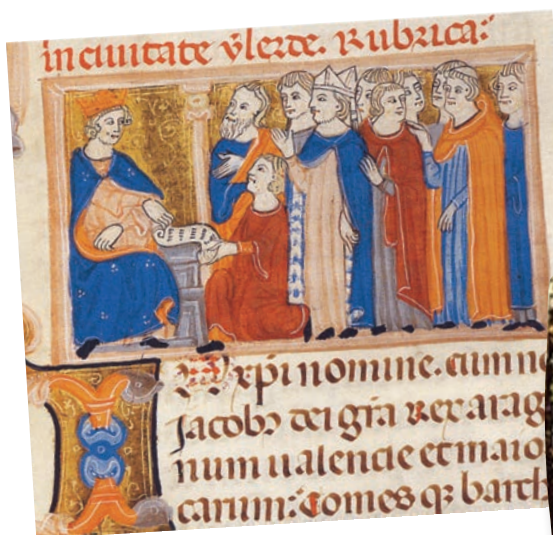 in ciuitate ylerde. Rubrica:
xpi nomine. cum
Jacobꝰ dei gr̃a Rex arag
num ualencie et maio
caꝝum: Comes qꝫ barch